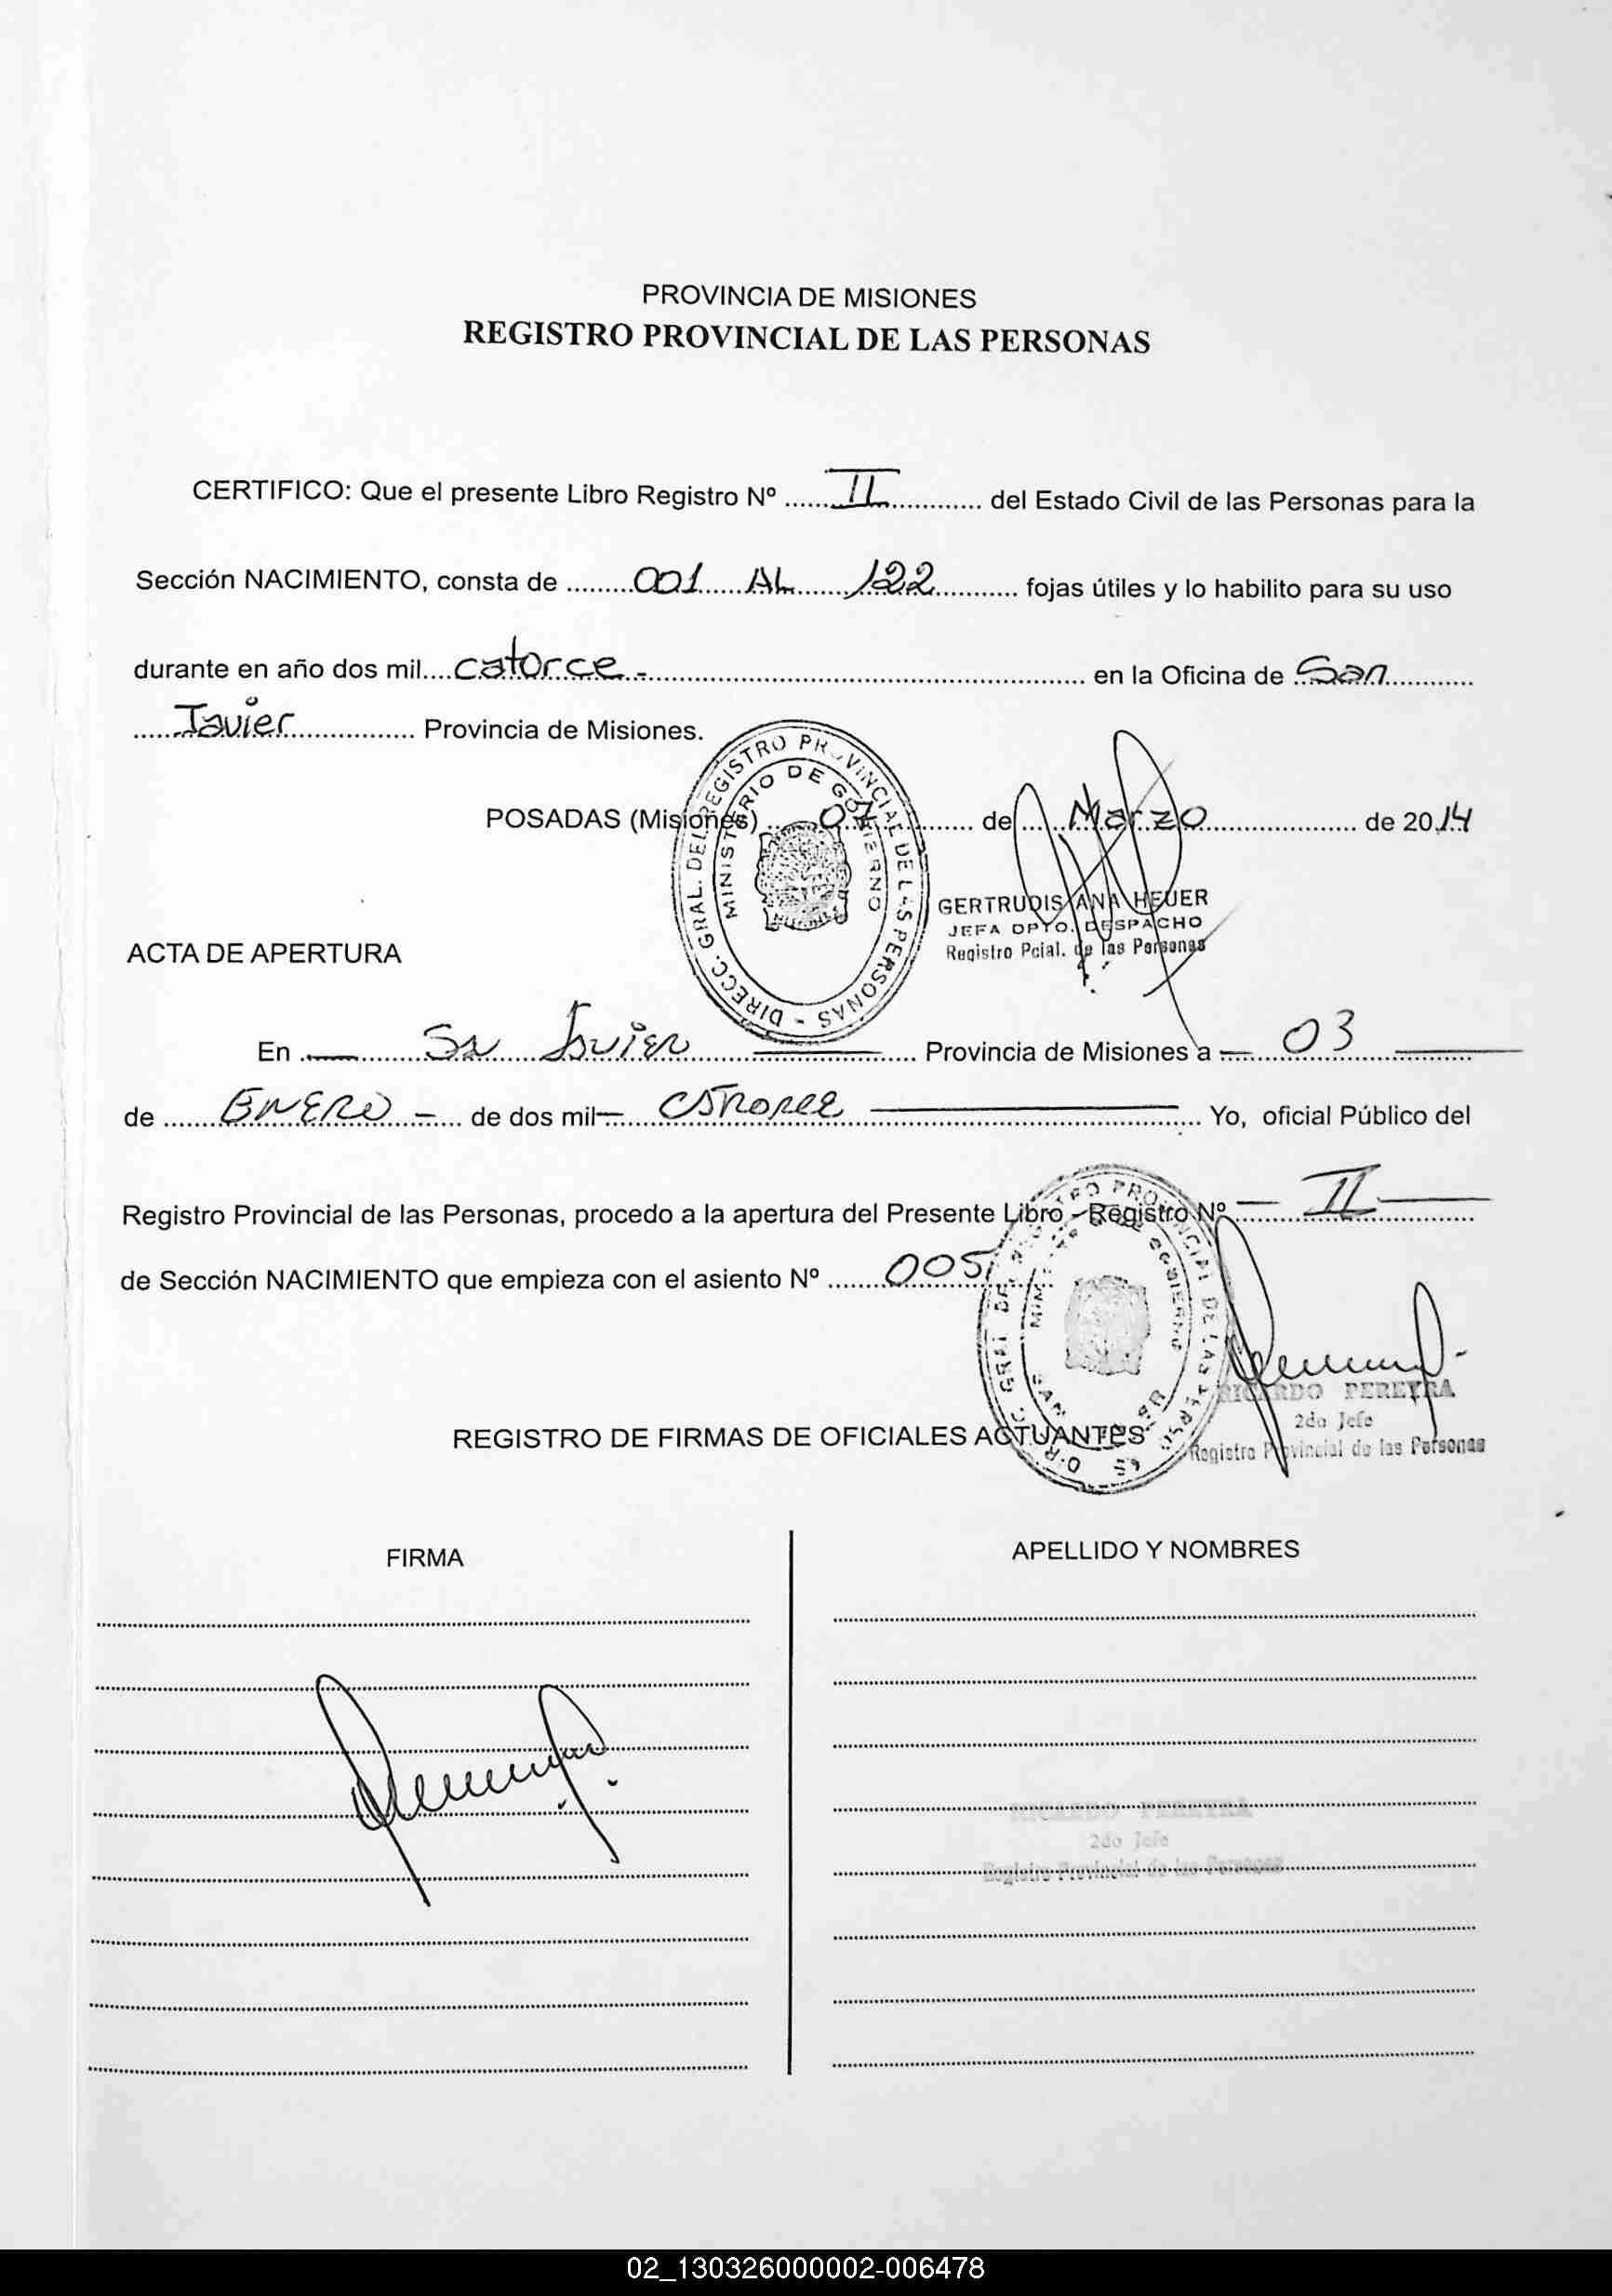 PROVINCIA DE MISIONES
REGISTRO PROVINCIAL DE LAS PERSONAS
CERTIFICO: Que el presente Libro Registro Nº ...... II ............ del Estado Civil de las Personas para la
Sección NACIMIENTO, consta de ......... 001 ...... AL ....... 122 ............ fojas útiles y lo habilito para su uso
durante en año dos mil.... catorce.- ........................................ en la Oficina de San............
...... Javier ................. Provincia de Misiones.
POSADAS (Misiones) ... ......... de .... Marzo .................... de 2014
DIRECC. GRAL. DEL REGISTRO PROVINCIAL DE LAS PERSONAS -
MINISTERIO DE GOBIERNO
GERTRUDIS ANA HEUER
JEFA DPTO. DESPACHO
Registro Pcial. de las Personas
ACTA DE APERTURA
En ............ Sn ...... Javier ........................ Provincia de Misiones a ...... 03 ............
de ...... ENERO - ...... de dos mil ...... catorce ........................................ Yo, oficial Público del
Registro Provincial de las Personas, procedo a la apertura del Presente Libro - Registro Nº - II
de Sección NACIMIENTO que empieza con el asiento Nº ....... 005
RICARDO PEREYRA
2do Jefe
Registro Provincial de las Personas
REGISTRO DE FIRMAS DE OFICIALES ACTUANTES
FIRMA
APELLIDO Y NOMBRES
RICARDO PEREYRA
2do Jefe
Registro Provincial de las Personas
02_130326000002-006478